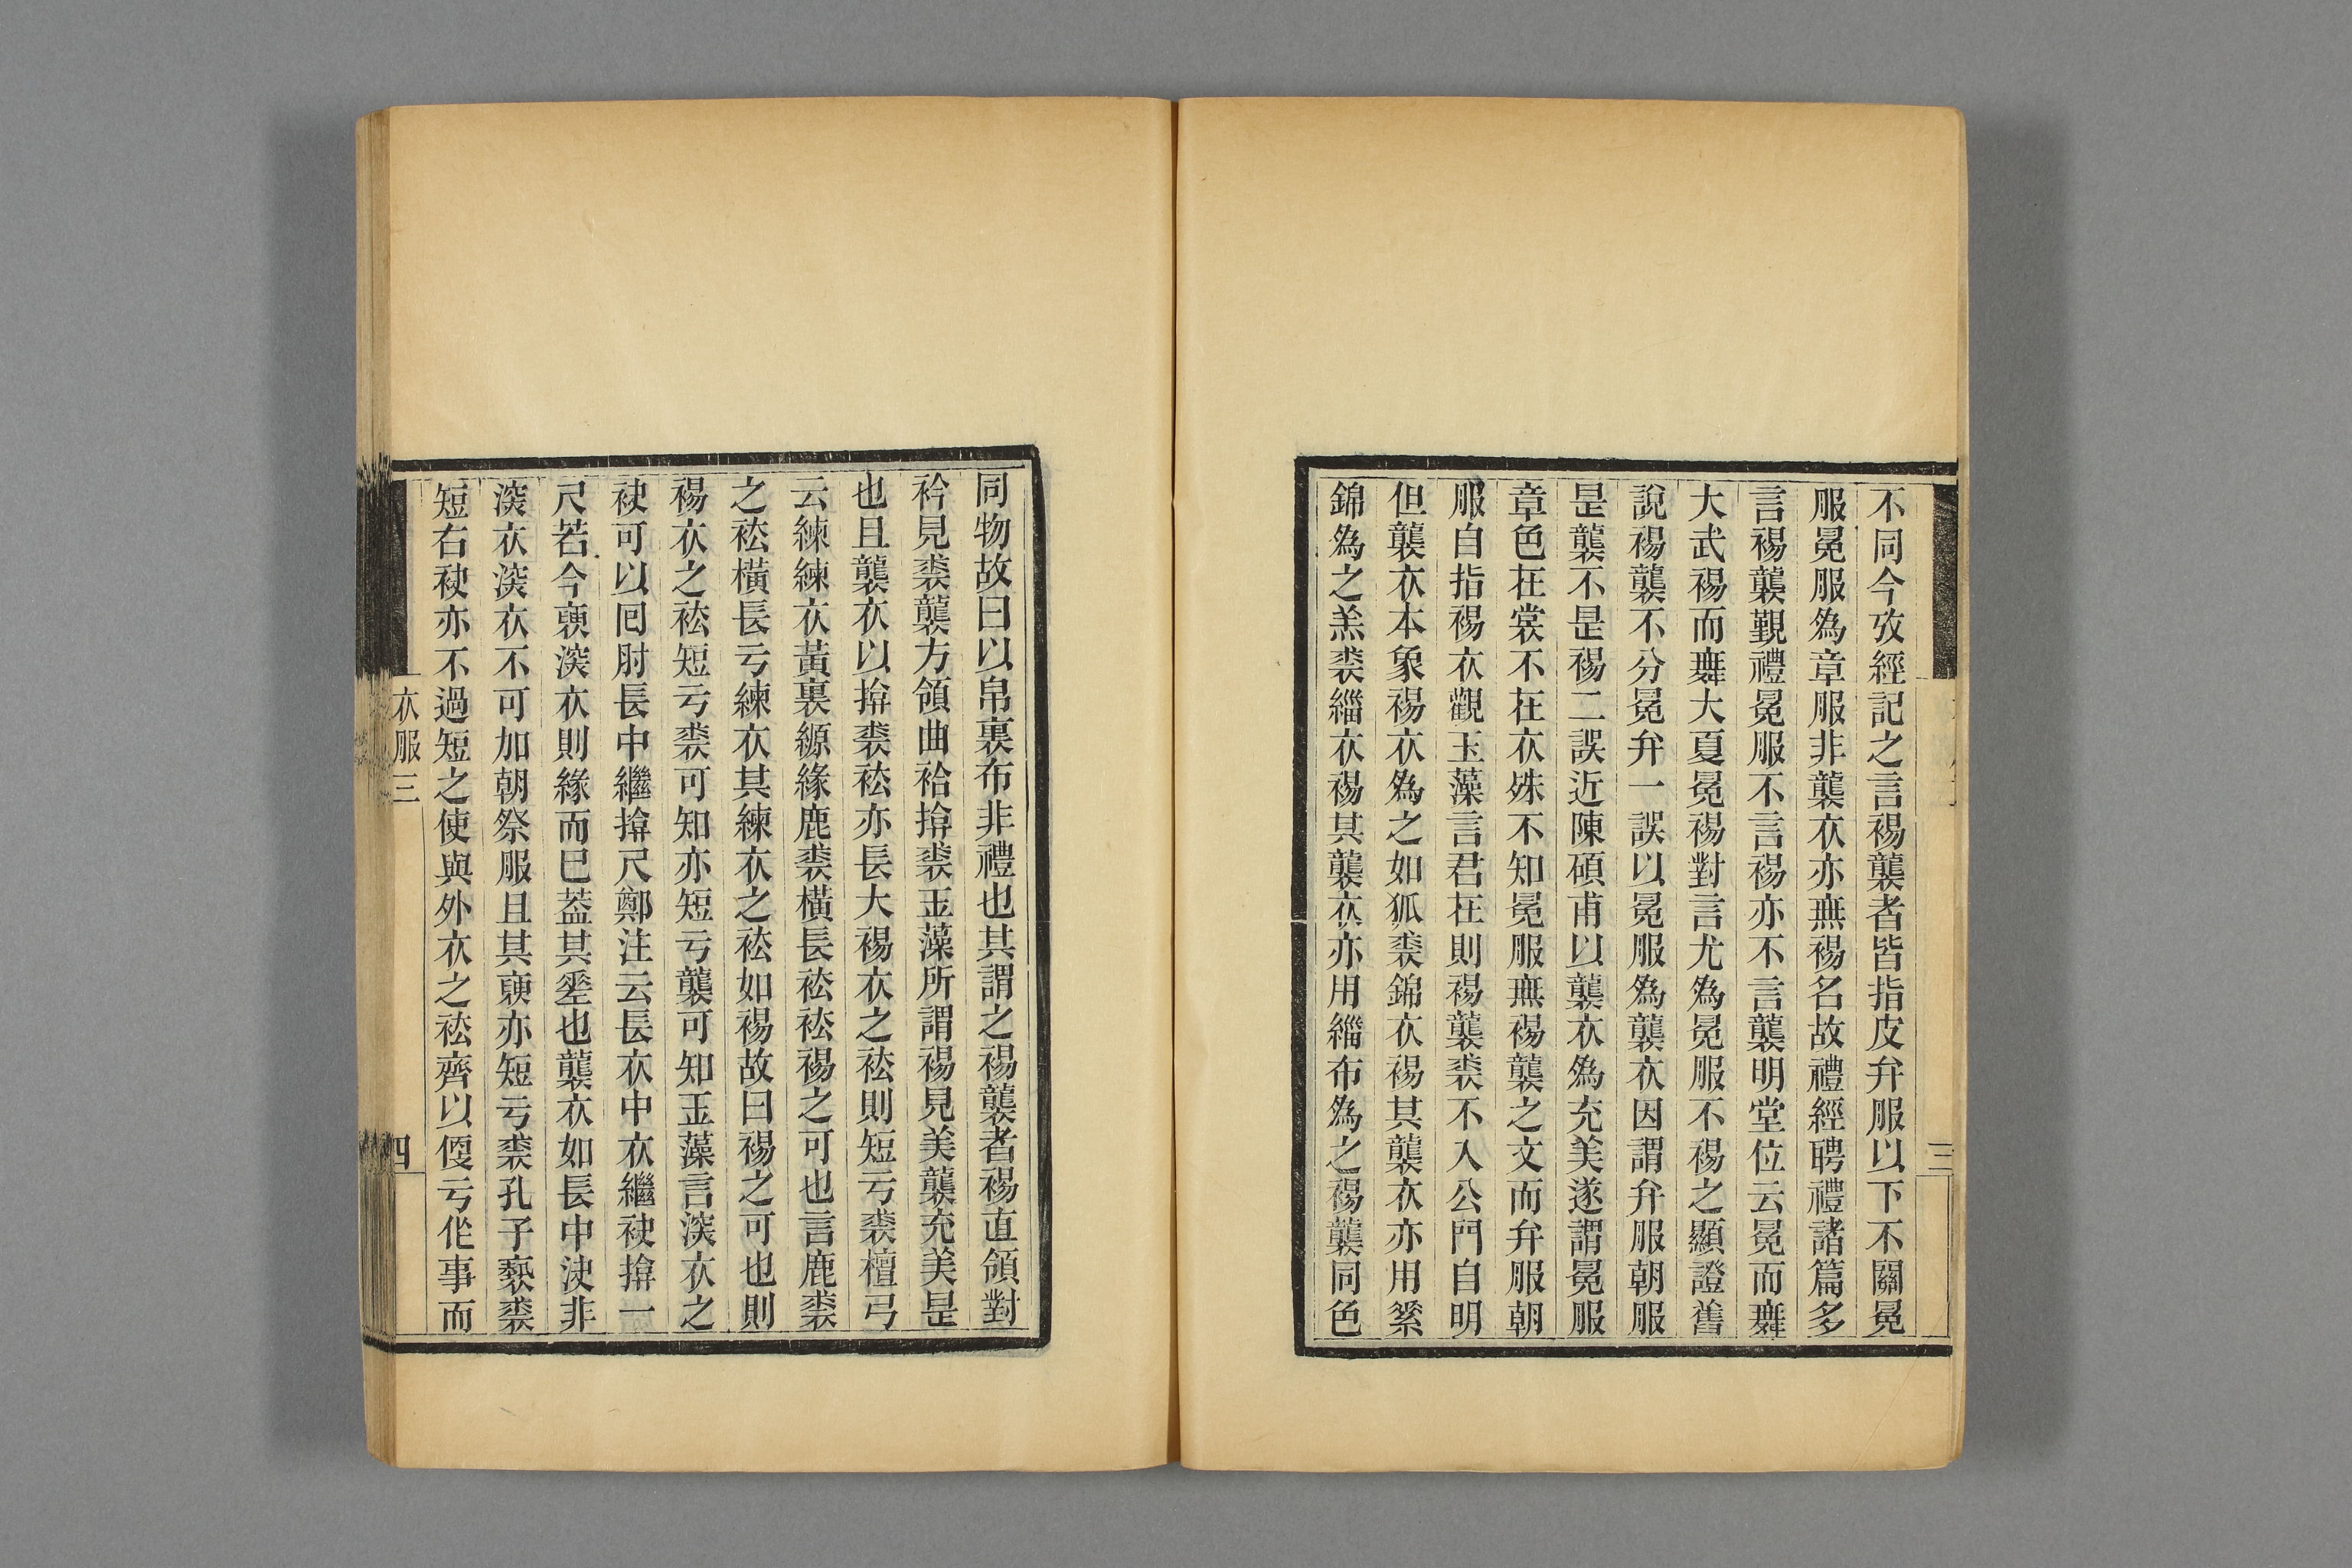 不同今攷經記之言裼襲者皆指皮弁服以下不關冕
服冕服為章服非襲衣亦無裼名故禮經聘禮諸篇多
言裼襲覲禮冕服不言裼亦不言襲明堂位云冕而舞
大武裼而舞大夏冕裼對言尤為冕服不裼之顯證舊
說裼襲不分冕弁一誤以冕服為襲衣因謂弁服朝服
是襲不是裼二誤近陳碩甫以襲衣為充美遂謂冕服
章色在裳不在衣殊不知冕服無裼襲之文而弁服朝
服自指裼衣觀玉藻言君在則裼襲裘不入公門自明
但襲衣本象裼衣為之如狐裘錦衣裼其襲衣亦用綮
錦為之羔裘緇衣裼其襲衣亦用緇布為之裼襲同色
三
同物故曰以帛裏布非禮也其謂之裼襲者裼直領對
衿見裘襲方領曲袷揜裘玉藻所謂裼見美襲充美是
也且襲衣以揜裘袪亦長大裼衣之袪則短亏裘檀弓
云練練衣黃裏縓緣鹿裘橫長袪袪裼之可也言鹿裘
之袪橫長亏練衣其練衣之袪如裼故曰裼之可也則
裼衣之袪短亏裘可知亦短亏襲可知玉藻言深衣之
袂可以回肘長中繼揜尺鄭注云長衣中衣繼袂揜一
尺若今褎深衣則緣而巳葢其差也襲衣如長中決非
深衣深衣不可加朝祭服且其褎亦短亏裘孔子褻裘
短右袂亦不過短之使與外衣之袪齊以偄亏作事而
衣服三
四